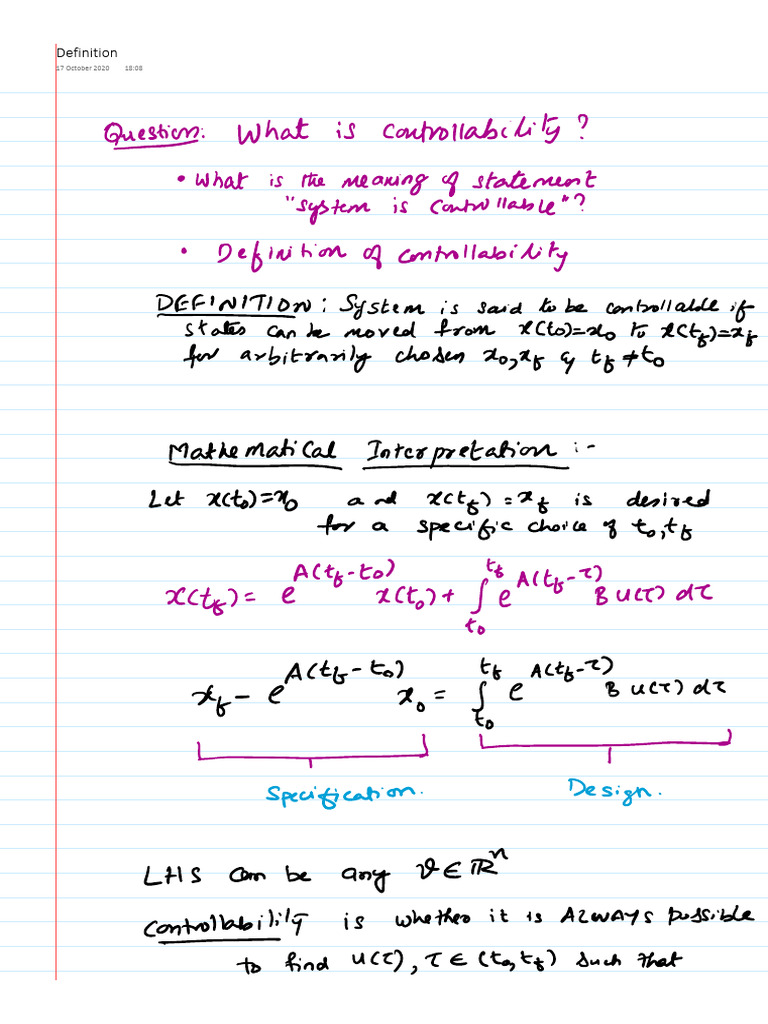 Definition
17 October 2020 18:08
Question: What is controllability?
• What is the meaning of statement
"system is controllable"?
• Definition of controllability
DEFINITION: System is said to be controllable if
states can be moved from x(t0)=x0 to x(tf)=xf
for arbitrarily chosen x0,xf & tf≠t0
Mathematical Interpretation :-
Let x(t0)=x0 and x(tf)=xf is desired
for a specific choice of t0,tf
x(tf) = e^{A(tf-t0)} x(t0) + ∫_{t0}^{tf} e^{A(tf-τ)} B u(τ) dτ
xf - e^{A(tf-t0)} x0 = ∫_{t0}^{tf} e^{A(tf-τ)} B u(τ) dτ
Specification. Design.
LHS can be any v∈ℝ^n
controllability is whether it is ALWAYS possible
to find u(τ), τ∈(t0,tf) such that